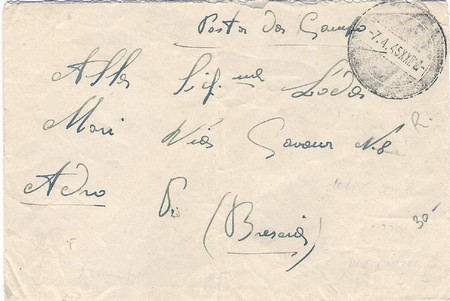 Posta da Campo
-7.4.45XXIII
Alla Sig.na Loda
Mari Via Cavour N.8
Adro Di
(Brescia)
R.
30